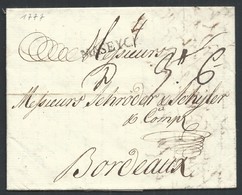 1777
4
MASEYCK
Messieurs
Messieurs Schröder & Schÿler
& Comp
Bordeaux